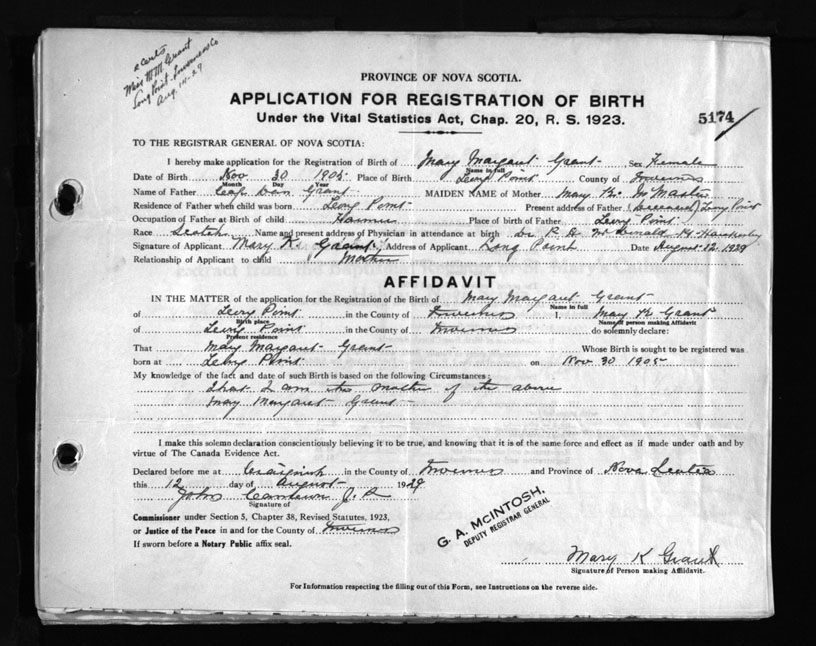 2 certs
Miss M M Grant
Long Point Inverness Co
Aug. 14-29
PROVINCE OF NOVA SCOTIA.
APPLICATION FOR REGISTRATION OF BIRTH
Under the Vital Statistics Act, Chap. 20, R. S. 1923.
5174
TO THE REGISTRAR GENERAL OF NOVA SCOTIA:
I hereby make application for the Registration of Birth of Mary Margaret Grant Sex Female
Name in full
Date of Birth Nov 30 1905 Place of Birth Long Point County of Inverness
Month Day Year
Name of Father Capt Dan Grant MAIDEN NAME of Mother Mary K. McMaster
Residence of Father when child was born Long Point Present address of Father (Deceased) Long Point
Occupation of Father at Birth of child Farmer Place of birth of Father Long Point
Race Scotch Name and present address of Physician in attendance at birth Dr P. A. McDonald Pt Hawkesbury
Signature of Applicant Mary K. Grant Address of Applicant Long Point Date August 12. 1929
Relationship of Applicant to child Mother
AFFIDAVIT
IN THE MATTER of the application for the Registration of the Birth of Mary Margaret Grant
Name in full
of Long Point in the County of Inverness I, Mary K Grant
Birth place Name of person making Affidavit
of Long Point in the County of Inverness do solemnly declare:
Present residence
That Mary Margaret Grant Whose Birth is sought to be registered was
born at Long Point on Nov 30 1905
My knowledge of the fact and date of such Birth is based on the following Circumstances:
That I am the mother of the above
Mary Margaret Grant
I make this solemn declaration conscientiously believing it to be true, and knowing that it is of the same force and effect as if made under oath and by
virtue of The Canada Evidence Act.
Declared before me at Craignish in the County of Inverness and Province of Nova Scotia
this 12 day of August 1929
John Cameron J. P.
Signature of
Commissioner under Section 5, Chapter 38, Revised Statutes, 1923,
or Justice of the Peace in and for the County of Inverness
If sworn before a Notary Public affix seal.
G. A. McINTOSH,
DEPUTY REGISTRAR GENERAL
Mary K Grant
Signature of Person making Affidavit.
For Information respecting the filling out of this Form, see Instructions on the reverse side.